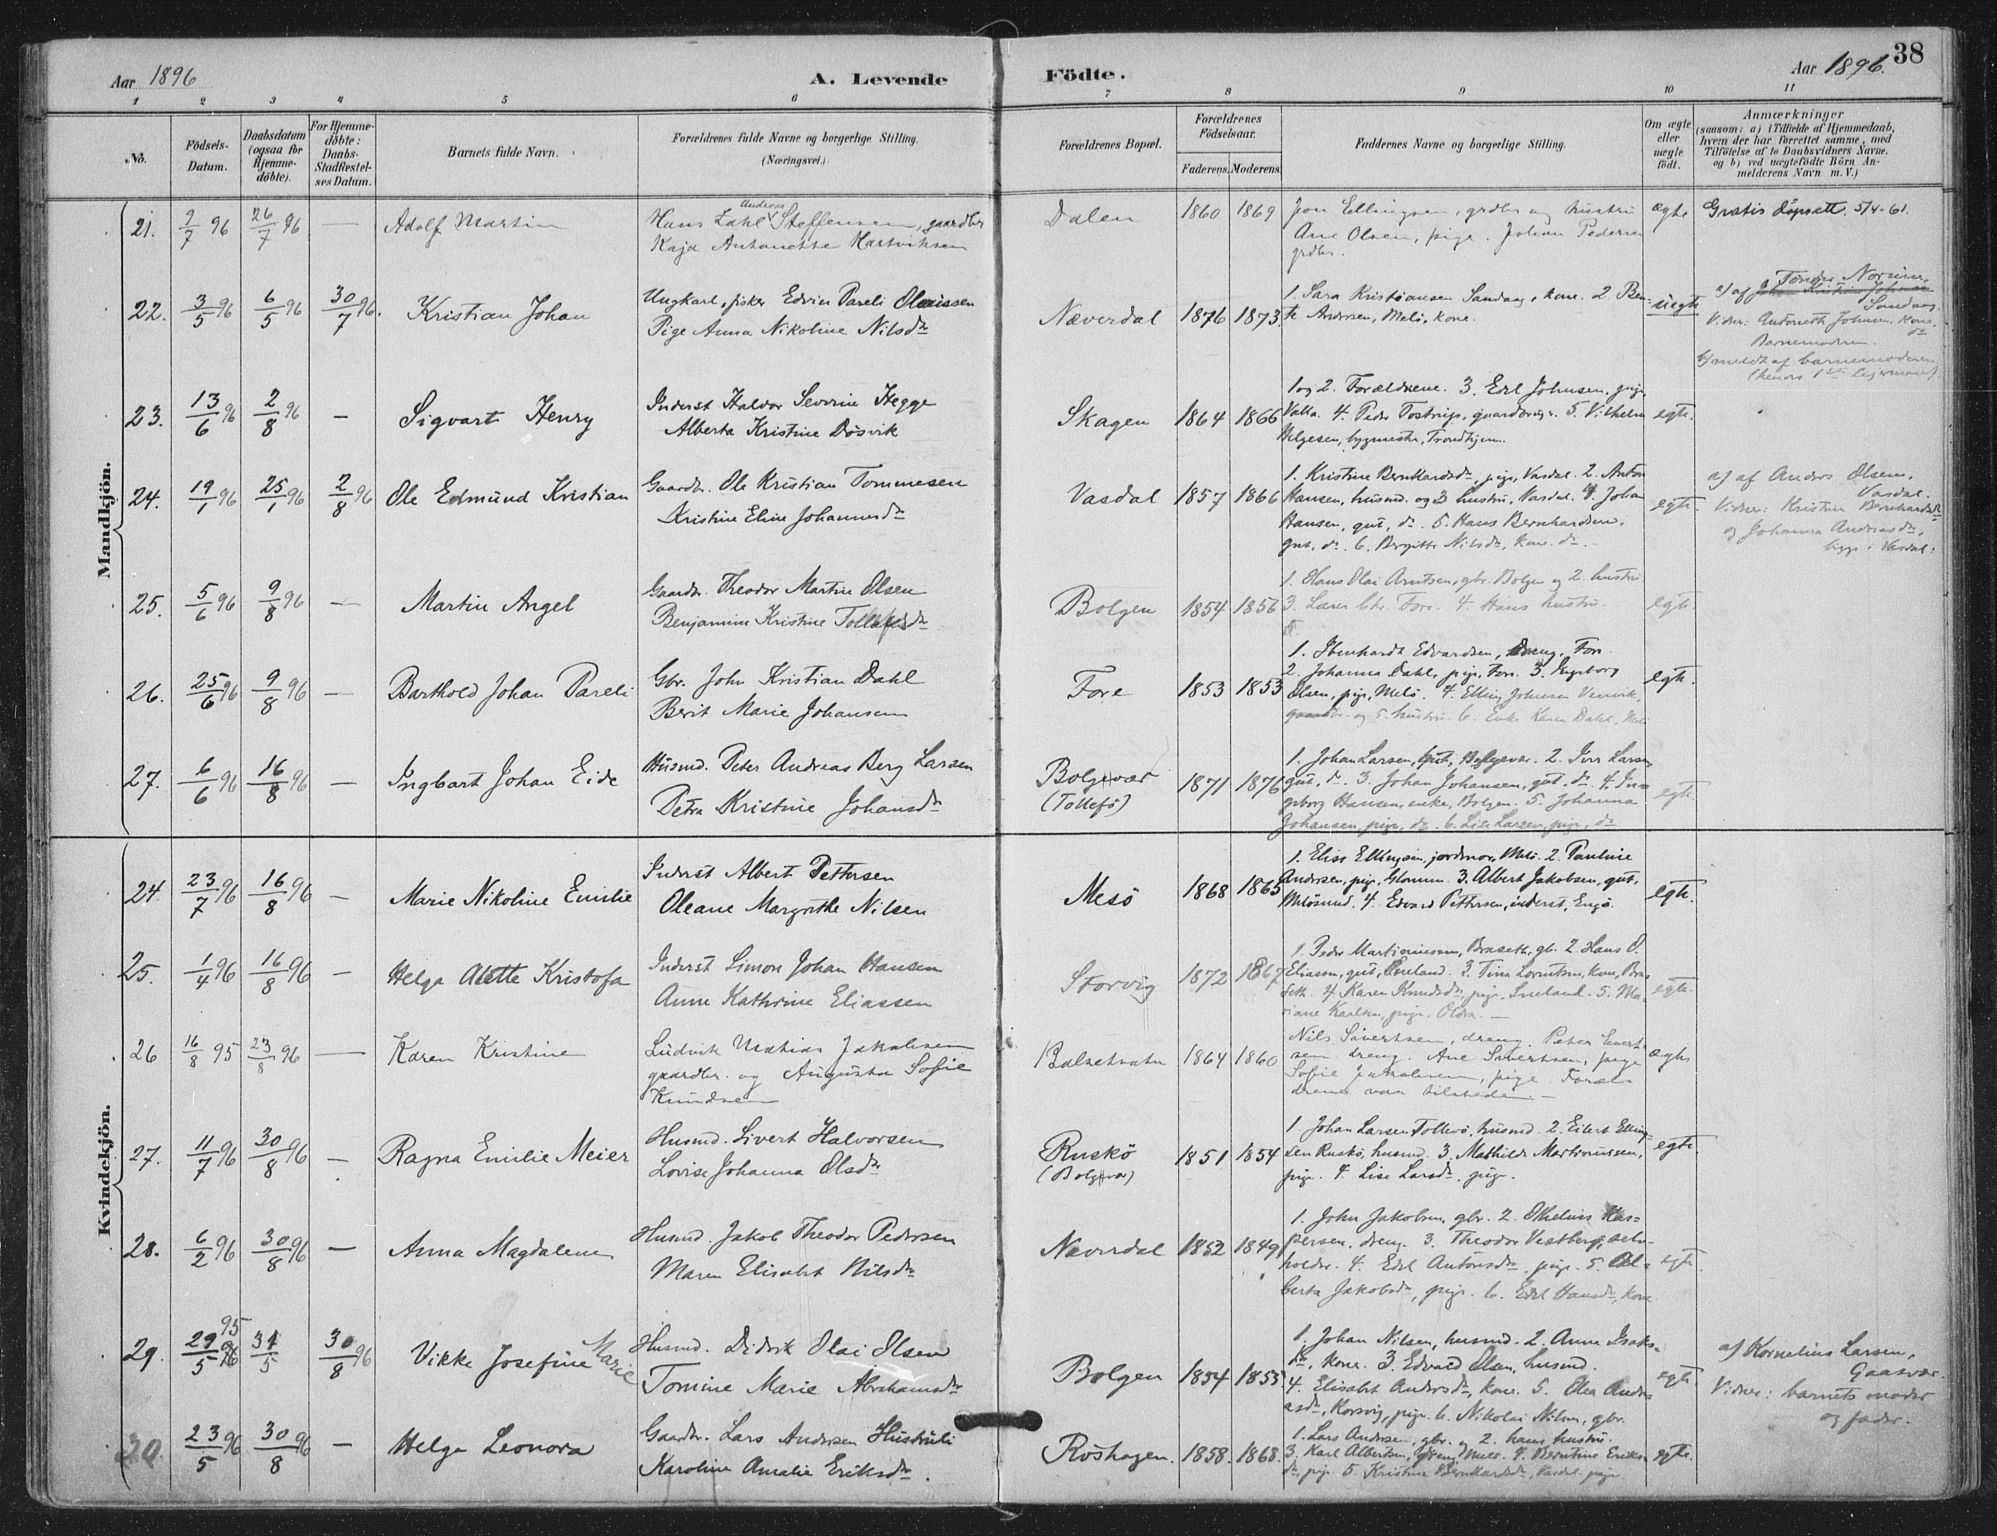 38
Aar 1896 A. Levende Fødte. Aar 1896.
1 2 3 4 5 6 7 8 9 10 11
No.
Födsels-
Datum.
Daabsdatum
(ogsaa for
Hjemme-
döbte).
For Hjemme-
döbte:
Daabs-
Stadfæstel-
ses Datum.
Barnets fulde Navn.
Forældrenes fulde Navne og borgerlige Stilling.
(Næringsvei.)
Forældrenes Bopæl.
Forældrenes
Födselsaar.
Faderens. Moderens.
Faddernes Navne og borgerlige Stilling.
Om ægte
eller
uægte
födt.
Anmærkninger
(saasom: a) i Tilfælde af Hjemmedaab,
hvem der har forrettet samme, med
Tilföielse af to Daabsvidners Navne,
og b) ved uægtefödte Börn An-
melderens Navn m. V.)
Mandkjön.
21. 9/7 96 26/7 96 — Adolf Martin
Andreas
Hans Dahl Steffensen, gaardbr
Kaja Antonette Hartviksen
Dalen 1860 1869
Jon Ellingsen, grdbr og hustru
Ane Olsen, pige. Johan Pedersen
grdbr.
ægte
Gratis dåpsatt. 5/4-61.
22. 3/5 96 6/5 96 30/7 96. Kristian Johan
Ungkarl, fisker Edvin Pareli Olausen
Pige Anna Nikoline Nilsdr
Næverdal 1876 1873
1. Sara Kristiansen Sandaag, kone. 2. Ben-
te Andersen, Melö, kone.
uegte
a) af
Sandaag
Vidner: Antonette Johnsen, kone,
Barnemoderen.
b) meldt af barnemoderen
23. 13/6 96 2/8 96 — Sigvart Henry
Inderst Haldor Severin Hegge
Alberta Kristine Døsvik
Skagen 1864 1866
1 og 2. Forældrene. 3. Edel Johnsen, pige
Valla. 4. Peder Tostrup, gaardbruger. 5. Vilhelm
Helgesen, bygmester, Trondhjem.
egte.
24. 19/1 96 25/1 96 2/8 96 Ole Edmund Kristian
Gaardbr. Ole Kristian Tommesen
Kristine Eline Johannesdr
Vasdal 1857 1866
1. Kristine Bernhardsdr, pige, Vasdal. 2. Anton
Hansen, husmd. og 3 hustru, Vasdal. 4. Johan
Hansen, gut, do. 5. Hans Bernhardsen,
gut, do. 6. Bergitte Nilsdr, kone do.
egte.
a) af Anders Olsen,
Vasdal.
Vidner: Kristine Bernhardsdr
og Johanna Andreasdr,
begge i Vasdal.
25. 5/6 96 9/8 96 — Martin Angel
Gaardbr. Theodor Martin Olsen
Benjamine Kristine Tollefsdr
Bolgen 1854 1856
1. Hans Olai Arntsen, gbr. Bolgen og 2. hustru
3. Lærer Fore. 4. Hans hustru.
egte.
26. 25/6 96 9/8 96 — Barthold Johan Pareli
Gbr. John Kristian Dahl
Berit Marie Johansen
Fore 1853 1853
1. Ibenhardt Edvardsen, dreng, Fore
2. Johanna Dahl, pige, Fore. 3. Ingeborg
Olsen, pige, Melö. 4. Elling Johnsen
gaardbr. og 5. hustru. 6. Enke Karen Dahl,
egte.
27. 6/6 96 16/8 96 — Ingbart Johan Eide
Husmd. Peter Andreas Berg Larsen
Petra Kristine Johansdr
Bolgvær
(Tollefö)
1871 1876
1. Johan Larsen, gut, Bolgvær. 2. Iver Larsen
gut, do. 3. Johan Johansen, gut, do. 4. In-
geborg Hansen, enke, Bolgen. 5. Johanna
Johansen, pige, do. 6. Lise Larsen, pige, do
egte.
Kvindekjön.
24. 23/7 96 16/8 96 — Marie Nikoline Emilie
Inderst Albert Pettersen
Oleane Margrethe Nilsen
Mesö 1868 1865
1. Elise Ellingsen, jordmor, Melö. 2. Pauline
Andersen, pige, Glommen. 3. Albert Jakobsen, gut,
Melösund. 4. Edvard Pettersen, inderst, Engö.
egte.
25. 1/4 96 16/8 96 — Helga Alette Kristofa
Inderst Simon Johan Hansen
Anne Kathrine Eliassen
Storvig 1872 1867
1. Peder Martinussen, Braset, gb. 2 Hans O.
Eliasen, gut, Eneland. 3. Tina Lorntsen, kone, Bra-
seth. 4 Karen Knudsdr, pige, Eneland. 5. Ma-
riane Karlsen, pige, Oldra.
egte.
26 16/8 95 23/8 96 — Karen Kristine
Ludvik Mathias Jakobsen
gaardbr. og Augusta Sofie
Knudsen
Balsetvatn 1864 1860
Nils Sivertsen, dreng. Peter Sivert-
sen dreng. Ane Sivertsen, pige
Sofie Jakobsen, pige. Foræl-
drene var tilstede.
ægte
27. 11/7 96 30/8 96 — Ragna Emilie Meier
Husmd. Sivert Halvorsen
Lovise Johanna Olsdr
Ruskö
(Bolgvær)
1851 1854
1. Johan Larsen Tollevö, husmd. 2. Eilert Elling-
sen Ruskö, husmd. 3. Mathilde Martinussen,
pige. 4. Lise Larsdr, pige.
egte.
28. 6/2 96 30/8 96 — Anna Magdalene
Husmd. Jakob Theodor Pedersen
Maren Elisabet Nilsdr
Næverdal 1852 1849
1. John Jakobsen, gbr. 2. Othelius Kas-
persen, dreng. 3. Theodor Vestberg, selv-
holder. 4. Edel Antonsdr, pige. 5. Al-
berta Jakobsdr, pige. 6. Edel Hansdr, kone
egte.
29. 29/5 95 31/5 30/8 96 Vikke Josefine Marie
Husmd. Didrik Olai Olsen
Tomine Marie Abrahamsdr
Bolgen 1854 1855
1. Johan Nilsen, husmd. 2. Anne Isaks-
dr, kone. 3. Edvard Olsen, husmd.
4. Elisabet Andersdr, kone. 5. Olea Andre-
asdr, Korsvig, pige. 6. Nikolai Nilsen, gbr.
egte
af Kornelius Larsen,
Gaasvær.
Vidner: barnets moder
og fader.
30. 23/5 96 30/8 96 — Helga Leonora
Gaardbr. Lars Andersen Hustruli
Karoline Amalie Eriksdr.
Roshagen. 1858. 1868.
1. Lars Andersen, gbr. og 2. hans hustru.
3. Karl Albertsen, dreng, Melö. 4. Berntine Eriks-
dr, pige. 5. Kristine Bernhardsdr, Vasdal pige.
egte.